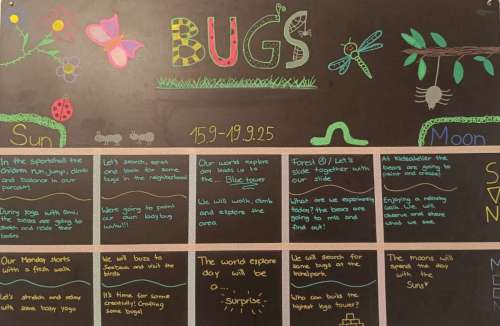 BUGS
Sun
15.9-19.9.25
Moon
In the sportshall the
children run, jump, climb
and balance in our
parcours
During yoga with
the bears are going to
stretch and relax their
bodies
Let's search,
and look for some
bugs in the neighborhood
Were going to paint
our own lady bug
Our world explore
day leads us to
the... Blue tower
We will walk, climb
and explore the
area
Forest / Let's
slide together with
our slide
What are we experimenting
today? the bears are
going to mix and
find out!
At Kidsatelier the
bears are going to
paint and create!
Enjoying a relaxing
walk. We will
observe and share
what we see
S
U
N
Our Monday starts
with a fresh walk
Let's stretch and relax
with some baby yoga
We will buzz to
and visit the
birds
It's time for some
creativity! Crafting
some bugs!
The world explore
day will be
a...
Surprise
We will search for
some bugs at the
Who can build the
highest lego tower?
The moons will
spend the day
with the
Suns
M